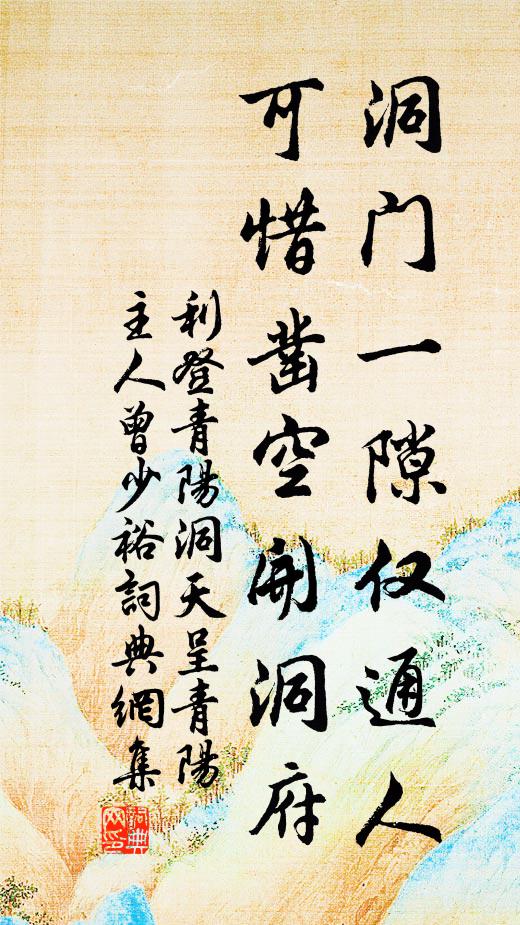 洞门一隙仅通人
可惜凿空開洞府
利登青陽洞天呈青陽
主人曾少裕詞典網集
詞典
网印